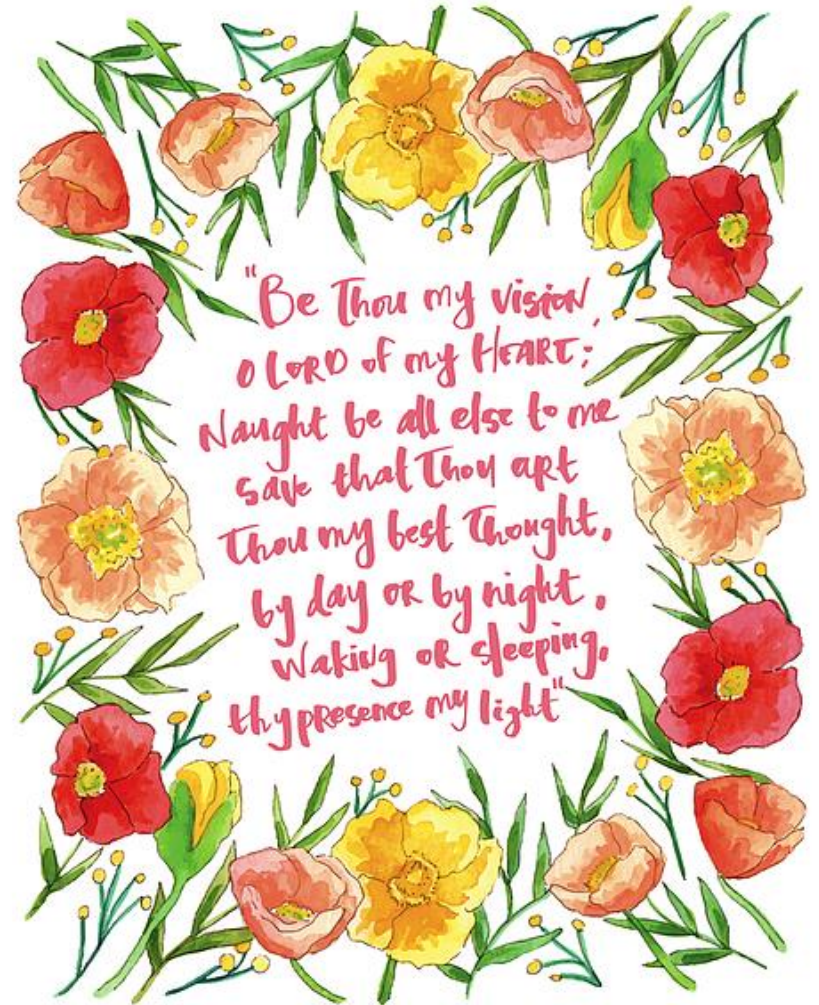 "Be Thou my vision,
O LORD of my HEART;
Naught be all else to me
save that Thou art
Thou my best Thought,
by day or by night,
waking or sleeping,
thy presence my light"